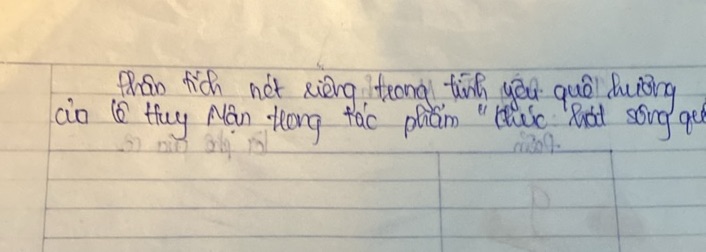 Phân tích nét riêng trong tình yêu quê hương
của Lê Huy Mậu trong tác phẩm " khúc hát sông quê